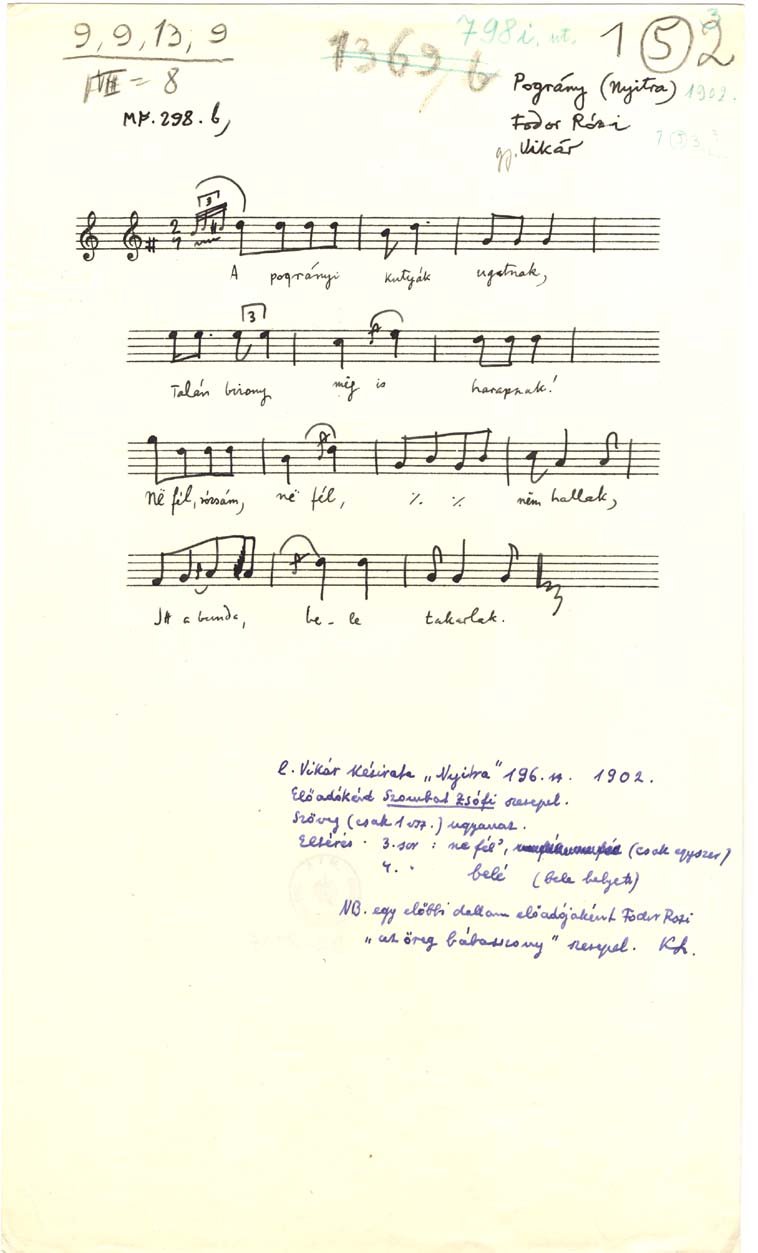 9, 9, 13, 9
798 i. ut.
1369/b
1 5 2
3
VII = 8
MF. 298. b,
Pográny (Nyitra) 1902.
Fodor Rózi
gy. Vikár
2
4
3
A pogrányi kutyák ugatnak,
3
Talán bizony még is harapnak!
Në fél, rózsám, në fél, ٪ ٪ nëm hallak,
Itt a bunda, be-le takarlak.
l. Vikár kézirata „Nyitra" 196. sz. 1902.
Előadóként Szombat Zsófi szerepel.
Szöveg (csak 1 vsz.) ugyanaz.
Eltérés. 3. sor: ne félj, (csak egyszer)
4. " belé (bele helyett)
NB. egy előbbi dallam előadójaként Fodor Rozi
„az öreg bábasszony" szerepel.